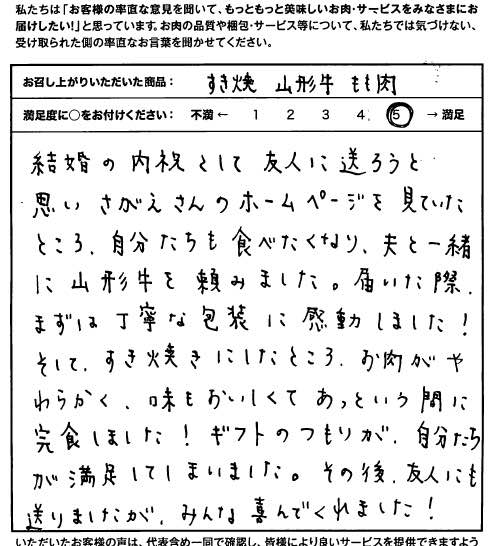 私たちは「お客様の率直な意見を聞いて、もっともっと美味しいお肉・サービスをみなさまにお
届けしたい!」と思っています。お肉の品質や梱包・サービス等について、私たちでは気づけない、
受け取られた側の率直なお言葉を聞かせてください。
お召し上がりいただいた商品： すき焼 山形牛 もも肉
満足度に○をお付けください： 不満 ← 1 2 3 4 5 → 満足
結婚の内祝として友人に送ろうと
思いさがえさんのホームページを見ていた
ところ、自分たちも食べたくなり、夫と一緒
に山形牛を頼みました。届いた際、
まずは丁寧な包装に感動しました！
そして、すき焼きにしたところ、お肉がや
わらかく、味もおいしくてあっという間に
完食しました！ギフトのつもりが、自分たち
が満足してしまいました。その後、友人にも
送りましたが、みんな喜んでくれました！
いただいたお客様の声は、代表含め一同で確認し、皆様により良いサービスを提供できますよう